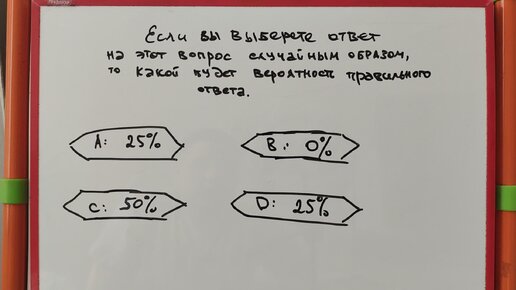 Если вы выберете ответ
на этот вопрос случайным образом,
то какой будет вероятность правильного
ответа.
A: 25%
B: 0%
C: 50%
D: 25%